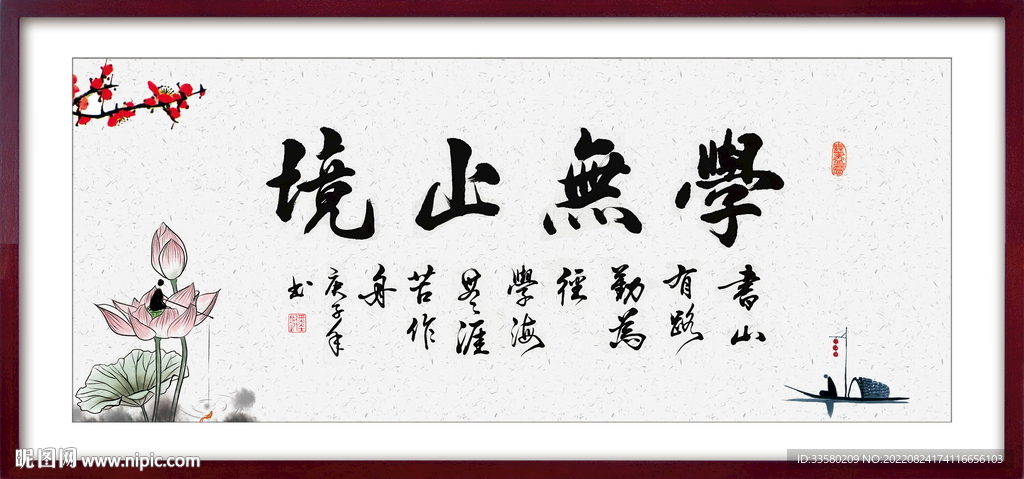 學無止境
書山
有路
勤為
徑
學海
無涯
苦作
舟
庚子年
書
昵图网 www.nipic.com
ID:33580209 NO:20220824174116656103